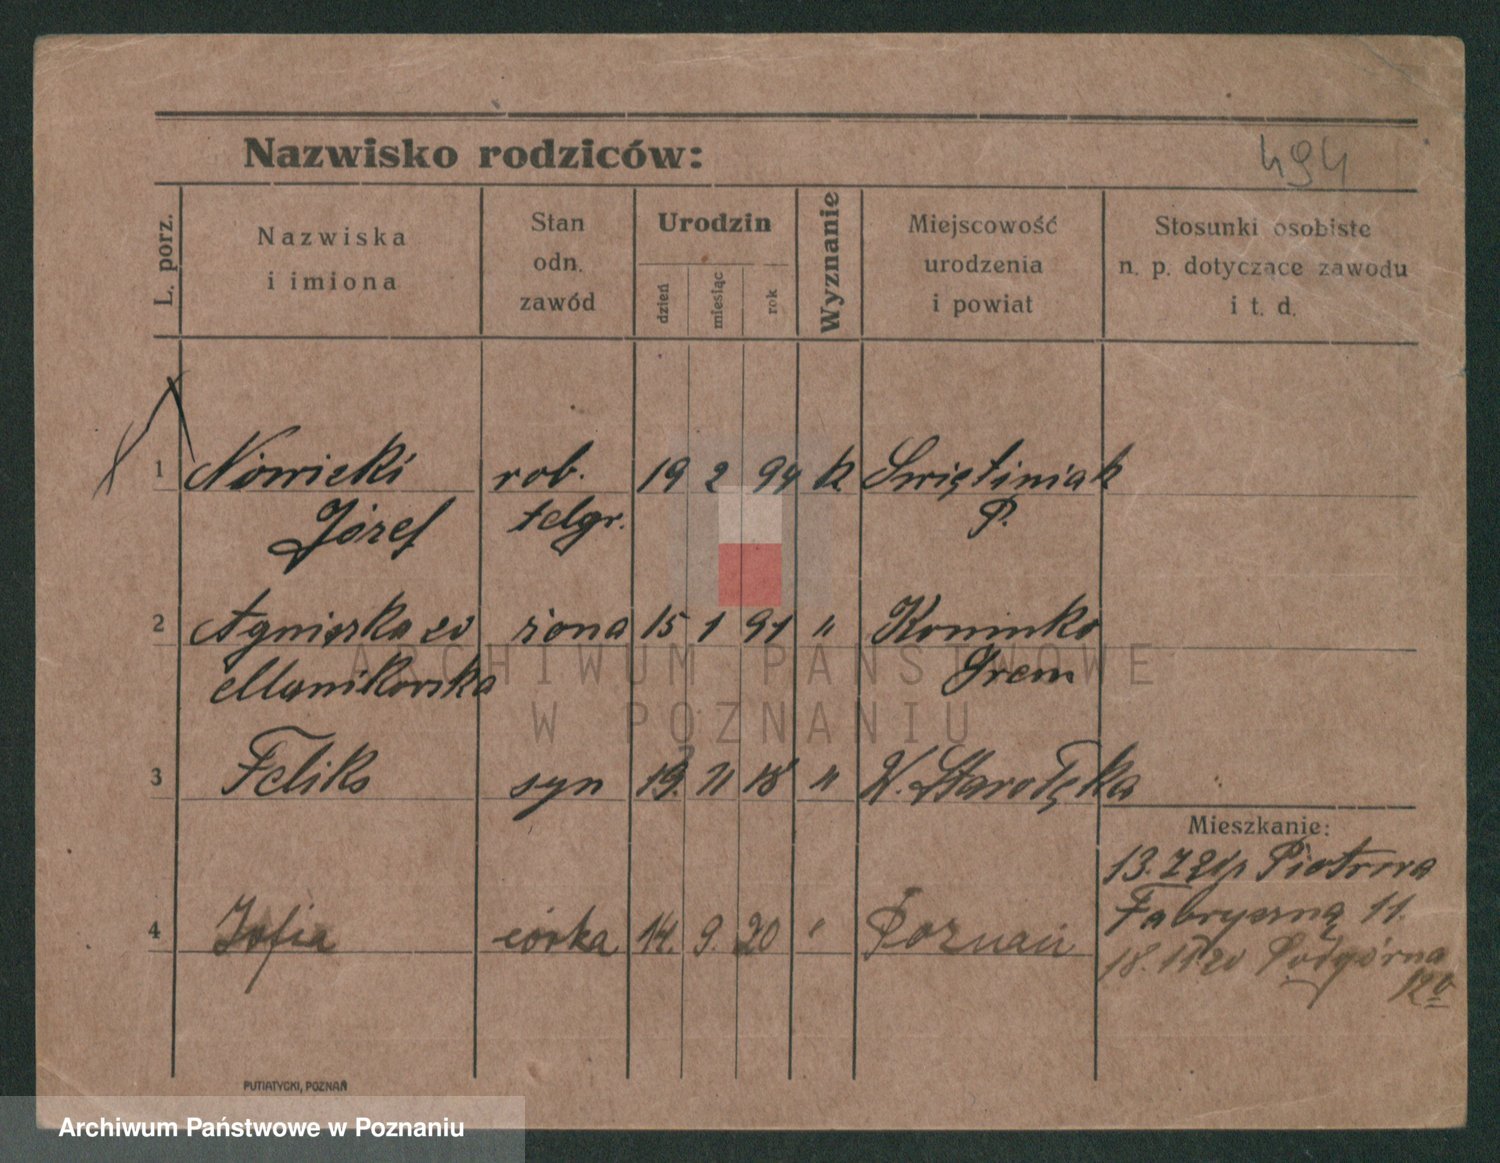 Nazwisko rodziców:
494
L. porz.
Nazwiska
i imiona
Stan
odn.
zawód
Urodzin
dzień
miesiąc
rok
Wyznanie
Miejscowość
urodzenia
i powiat
Stosunki osobiste
n. p. dotyczące zawodu
i t. d.
1 Nowicki rob. 19 2 94 k Swiętiniak
Józef telgr. P.
2 Agnieszka zd żona 15 1 91 " Koninko
Manikowska Śrem
3 Feliks syn 19. 11 18 " K. Starołęka
Mieszkanie:
13. 7 21 Piotrowa
Fabryczną 11.
4 Zofia córka 14. 9. 20 " Poznań
18. 11 20 Podgórna
12a
PUTIATYCKI, POZNAŃ
ARCHIWUM PAŃSTWOWE
W POZNANIU
Archiwum Państwowe w Poznaniu